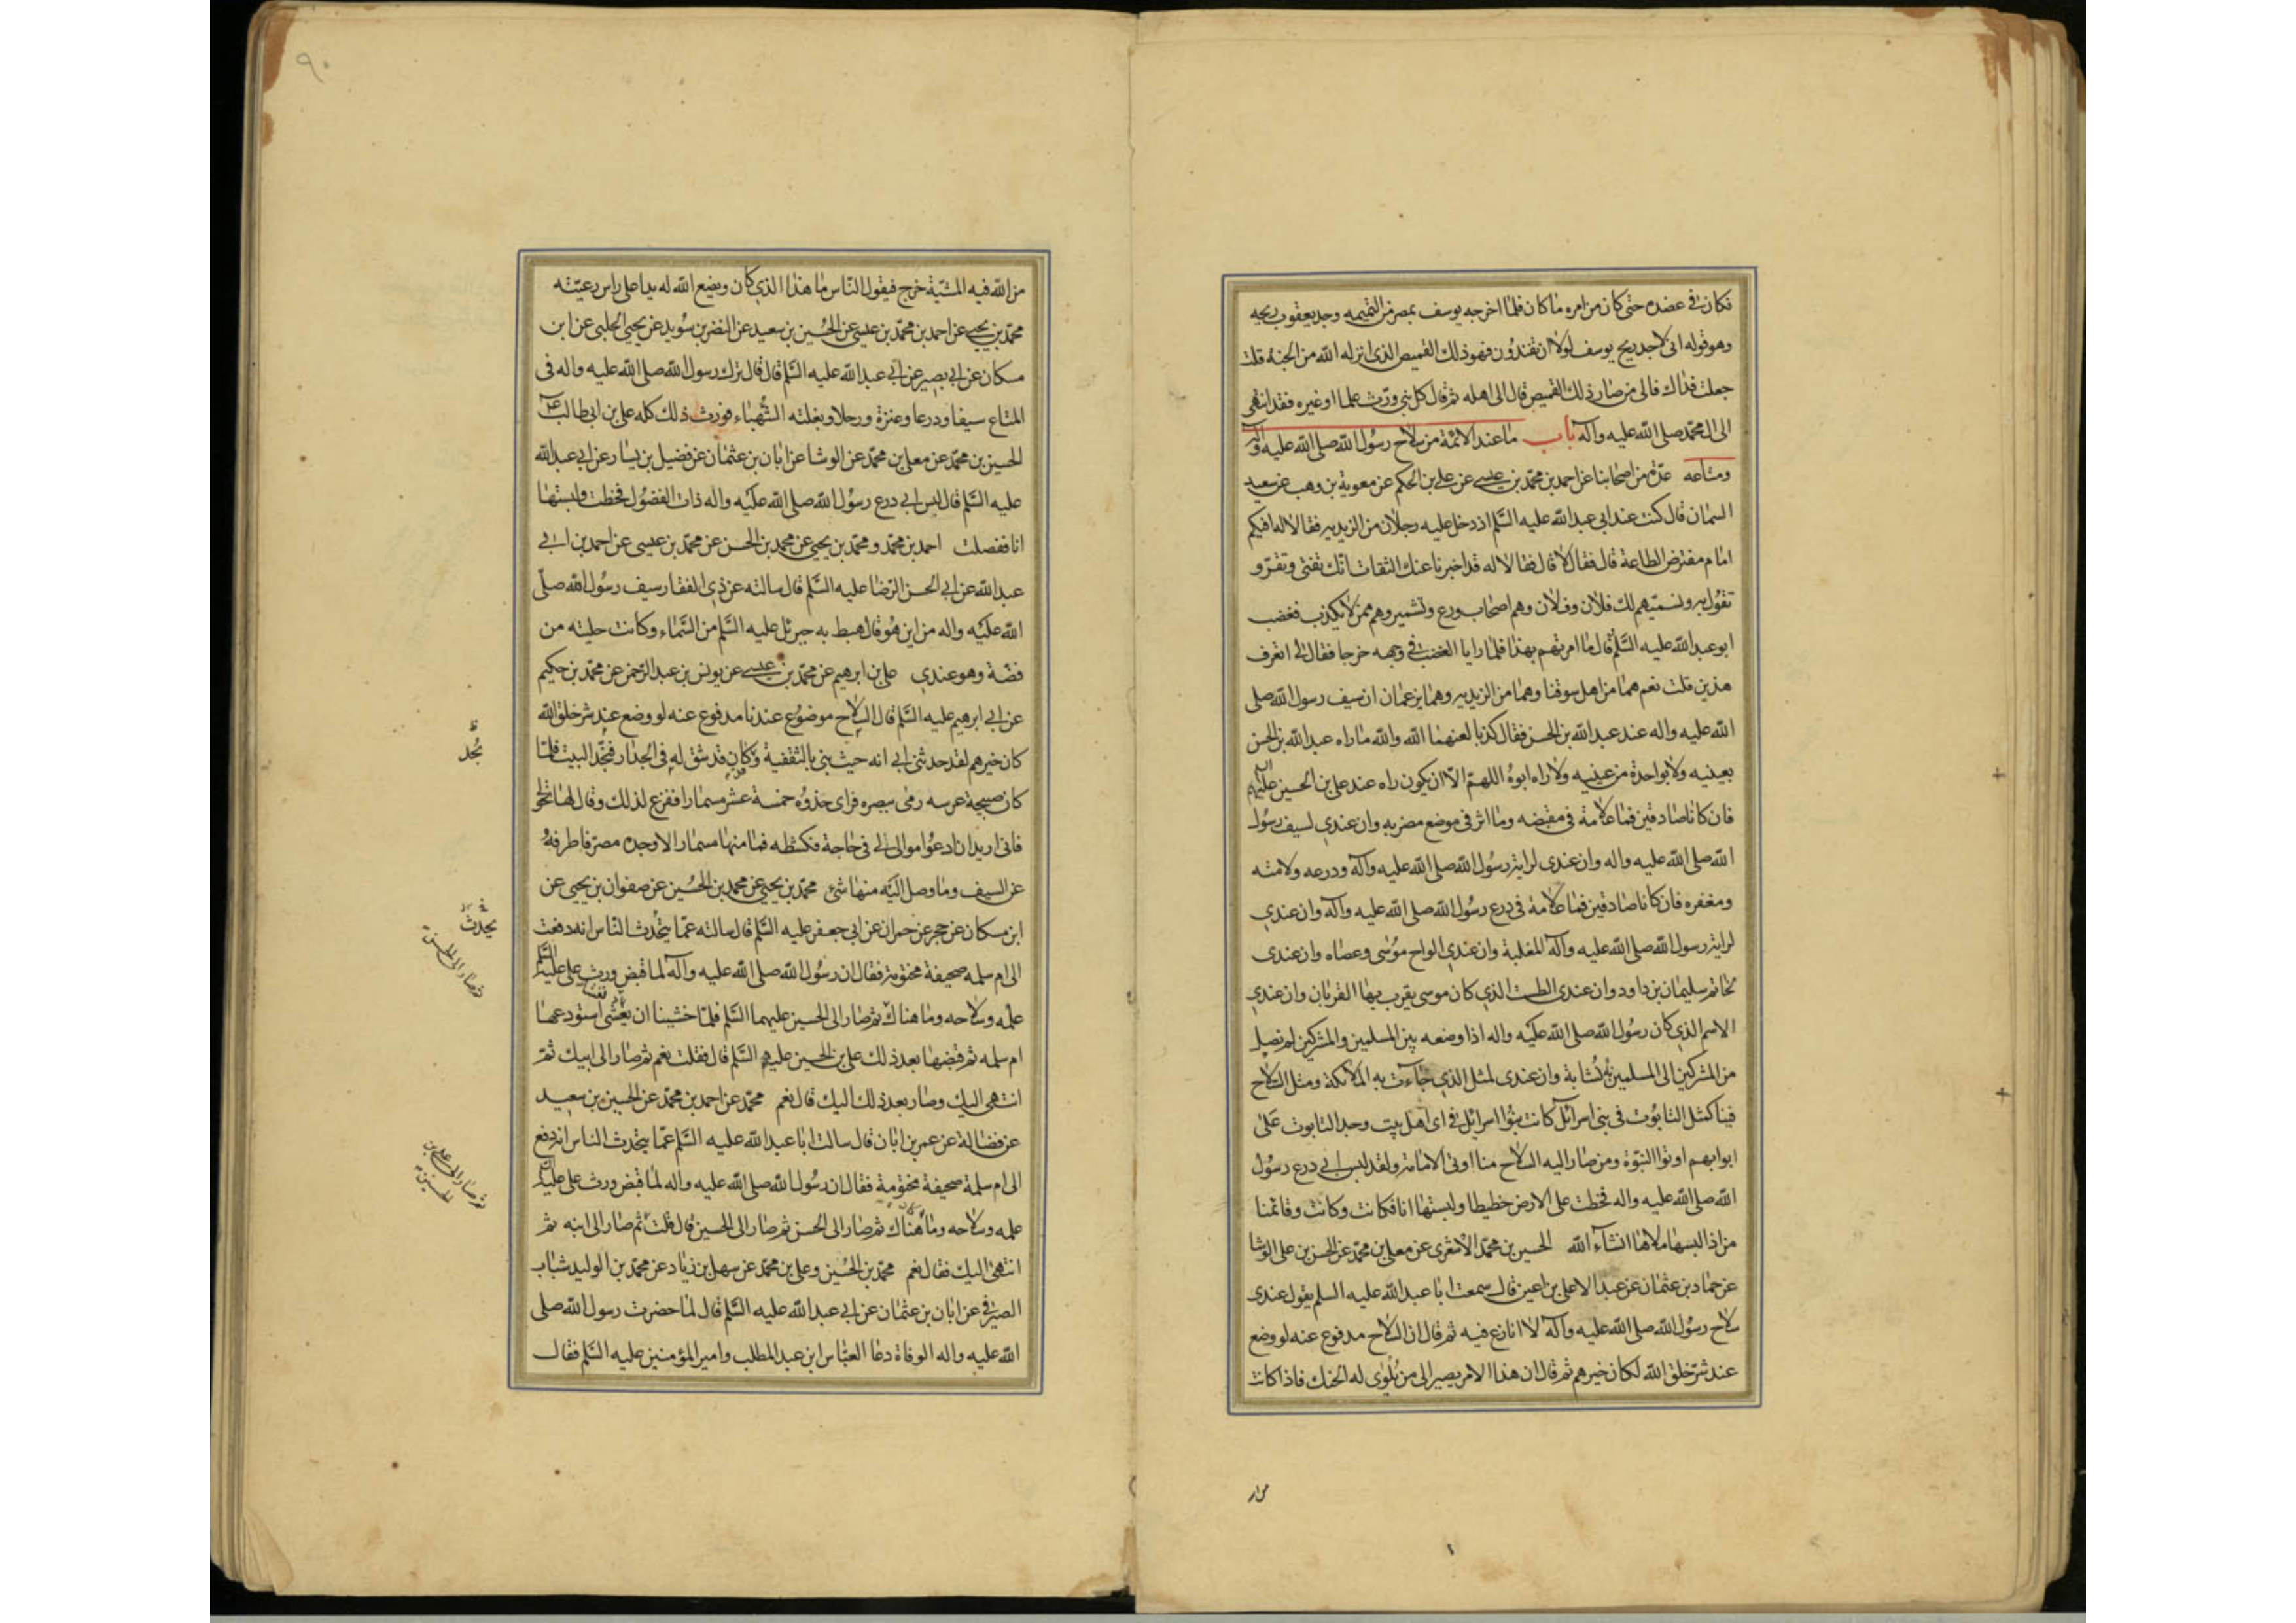 فكان فى عضده حتى كان من امره ما كان فلما اخرجه يوسف بمصر من التميمه وجد يعقوب ريحه
وهو قوله انى لاجد ريح يوسف لولا ان تفندون فهو ذلك القميص الذى انزله الله من الجنة قلت
جعلت فداك فالى من صار ذلك القميص قال الى اهله ثم قال كل نبى ورث علما او غيره فقد انتهى
الى ال محمد صلى الله عليه وآله باب ما عند الائمة من سلاح رسول الله صلى الله عليه وآله
ومتاعه عدة من اصحابنا عن احمد بن محمد بن عيسى عن على بن الحكم عن معوية بن وهب عن سعيد
السمان قال كنت عند ابى عبد الله عليه السلم اذ دخل عليه رجلان من الزيديه فقالا له افيكم
امام مفترض الطاعة قال فقال لا قال فقالا له قد اخبرنا عنك الثقات انك تفتى وتقر و
تقول به ونسميهم لك فلان وفلان وهم اصحاب ورع وتشمير وهم ممن لا يكذب فغضب
ابو عبد الله عليه السلم قال ما امرتهم بهذا فلما رايا الغضب فى وجهه خرجا فقال لى اتعرف
هذين قلت نعم هما من اهل سوقنا وهما من الزيديه وهما يزعمان ان سيف رسول الله صلى
الله عليه واله عند عبد الله بن الحسن فقال كذبا لعنهما الله والله ما راه عبد الله بن الحسن
بعينيه ولا بواحدة من عينيه ولا راه ابوه اللهم الا ان يكون راه عند على بن الحسين عليهم
فان كانا صادقين فما علامة فى مقبضه وما اثر فى موضع مضربه وان عندى لسيف رسول
الله صلى الله عليه واله وان عندى لراية رسول الله صلى الله عليه وآله ودرعه ولامته
ومغفره فان كانا صادقين فما علامة فى درع رسول الله صلى الله عليه وآله وان عندى
لراية رسول الله صلى الله عليه وآله المغلبة وان عندى الواح موسى وعصاه وان عندى
لخاتم سليمان بن داود وان عندى الطست الذى كان موسى يقرب بها القربان وان عندى
الاسم الذى كان رسول الله صلى الله عليه واله اذا وضعه بين المسلمين والمشركين لم تصل
من المشركين الى المسلمين نشابة وان عندى لمثل الذى جاءت به الملائكة ومثل السلاح
فينا كمثل التابوت فى بنى اسرائل كانت بنوا اسرائل فى اى اهل بيت وجد التابوت على
ابوابهم اوتوا النبوة ومن صار اليه السلاح منا اوتى الامامة ولقد لبس ابى درع رسول
الله صلى الله عليه واله فخطت على الارض خطيطا ولبستها انا فكانت وكانت وقائمنا
من اذا لبسها ملاها انشاء الله الحسين بن محمد الاشعرى عن معلى بن محمد عن الحسن بن على الوشا
عن حماد بن عثمان عن عبد الاعلى بن اعين قال سمعت ابا عبد الله عليه السلم يقول عندى
سلاح رسول الله صلى الله عليه وآله لا انازع فيه ثم قال ان السلاح مدفوع عنه لو وضع
عند شر خلق الله لكان خيرهم ثم قال ان هذا الامر يصير الى من يلوى له الحنك فاذا كانت
من الله
٩٠
من الله فيه المشية خرج فيقول الناس ما هذا الذى كان ويضع الله له يدا على راس رعيته
محمد بن يحيى عن احمد بن محمد بن عيسى عن الحسين بن سعيد عن النضر بن سويد عن يحيى الحلبى عن ابن
مسكان عن ابى بصير عن ابى عبد الله عليه السلم قال قال ترك رسول الله صلى الله عليه واله فى
المتاع سيفا ودرعا وعنزة ورحلا وبغلته الشهباء فورث ذلك كله على بن ابى طالب ع
الحسين بن محمد عن معلى بن محمد عن الوشا عن ابان بن عثمان عن فضيل بن يسار عن ابى عبد الله
عليه السلم قال لبس ابى درع رسول الله صلى الله عليه واله ذات الفضول فخطت ولبستها
انا ففضلت احمد بن محمد و محمد بن يحيى عن محمد بن الحسن عن محمد بن عيسى عن احمد بن ابى
عبد الله عن ابى الحسن الرضا عليه السلم قال سالته عن ذى الفقار سيف رسول الله صلى
الله عليه واله من اين هو قال هبط به جبرئل عليه السلم من السماء وكانت حليته من
فضة وهو عندى على بن ابرهيم عن محمد بن عيسى عن يونس بن عبد الرحمن عن محمد بن حكيم
عن ابى ابرهيم عليه السلم قال السلاح موضوع عندنا مدفوع عنه لو وضع عند شر خلق الله
كان خيرهم لقد حدثنى ابى انه حيث بنى بالثقفية وكان قد شق له فى الجدار فنجد البيت فلما
كان صبيحة عرسه رمى ببصره فراى حذوه خمسة عشر مسمارا ففزع لذلك وقال لها تحولى
فانى اريد ان ادعوا موالى لى فى حاجة فكشطه فما منها مسمار الا وجده مصرفا طرفه
عن السيف وما وصل اليه منها شئ محمد بن يحيى عن محمد بن الحسين عن صفوان بن يحيى عن
ابن مسكان عن حجر عن حمران عن ابى جعفر عليه السلم قال سالته عما يتحدث الناس انه دفعت
الى ام سلمه صحيفة مختومة فقال ان رسول الله صلى الله عليه وآله لما قبض ورث على عليه السلم
علمه وسلاحه وما هناك ثم صار الى الحسين عليهما السلم فلما خشينا ان نغشى استودعها
ام سلمه ثم قبضها بعد ذلك على بن الحسين عليهم السلم قال فقلت نعم ثم صار الى ابيك ثم
انتهى اليك وصار بعد ذلك اليك قال نعم محمد عن احمد بن محمد عن الحسين بن سعيد
عن فضالة عن عمر بن ابان قال سالت ابا عبد الله عليه السلم عما يتحدث الناس انه دفع
الى ام سلمة صحيفة مختومة فقال ان رسول الله صلى الله عليه واله لما قبض ورث على عليه السلم
علمه وسلاحه وما هناك ثم صار الى الحسن ثم صار الى الحسين قال قلت ثم صار الى ابنه ثم
انتهى اليك فقال نعم محمد بن الحسين وعلى بن محمد عن سهل بن زياد عن محمد بن الوليد شباب
الصيرفى عن ابان بن عثمان عن ابى عبد الله عليه السلم قال لما حضرت رسول الله صلى
الله عليه واله الوفاة دعا العباس ابن عبد المطلب وامير المؤمنين عليه السلم فقال
نجد
يحدث
ثم صار الى الحسن
ثم صار الى على بن
الحسين